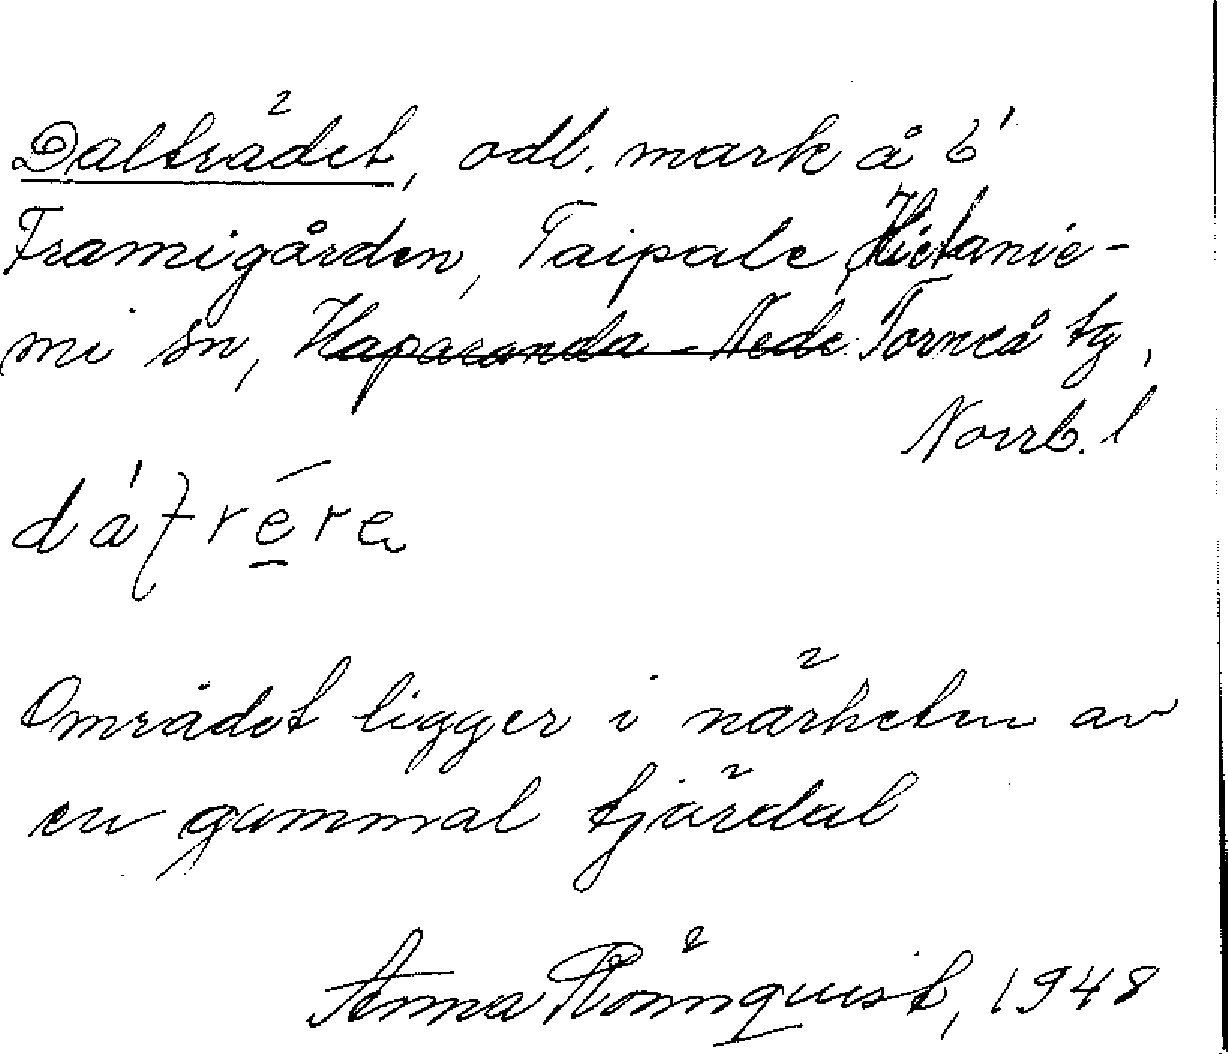 Dalträdet, odl. mark å 6¹
Framigården, Taipale, Hietanie-
mi sn, Haparanda - Neder Torneå tg,
Norrb. l
Området ligger i närheten av
en gammal tjärdal
Anna Rönnquist, 1948